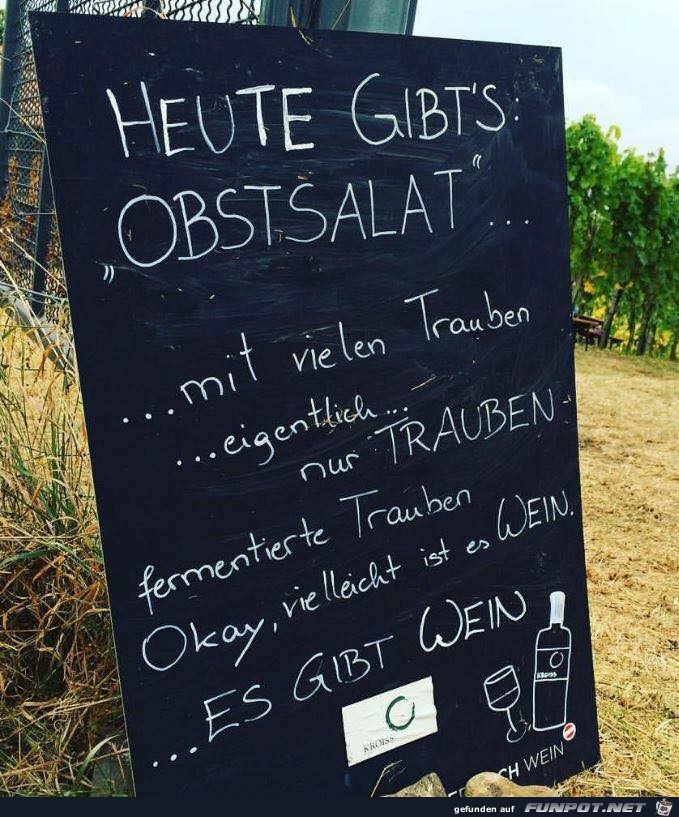 HEUTE GIBT'S:
„OBSTSALAT“...
...mit vielen Trauben
...eigentlich...
nur TRAUBEN -
fermentierte Trauben
Okay, vielleicht ist es WEIN.
...ES GIBT WEIN
KROISS
KROISS
CH WEIN
gefunden auf FUNPOT.NET